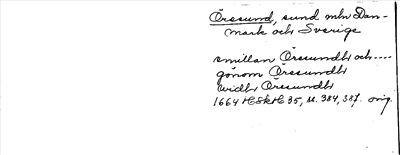 Öresund, sund mln Dan-
mark och Sverige
emillan Öressundh och....
gönom Öressundh
widh Öressundh
1664 HSH 35, s. 384, 387. orig.